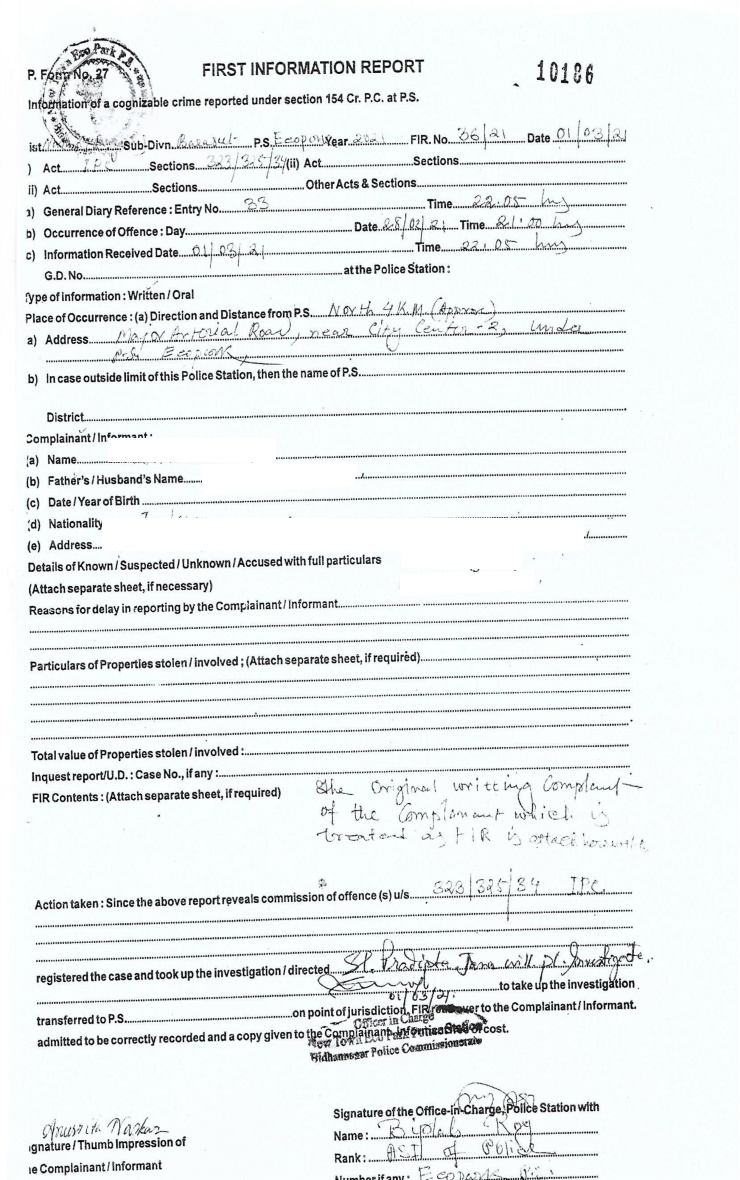 Eco Park P.S.
P. Form No. 27
FIRST INFORMATION REPORT
10186
Information of a cognizable crime reported under section 154 Cr. P.C. at P.S.
ist Sub-Divn. Barasat P.S. Ecopark Year 2021 FIR. No. 36/21 Date 01/03/21
) Act IPC Sections 323/325/34 (ii) Act Sections
ii) Act Sections Other Acts & Sections
a) General Diary Reference : Entry No. 33 Time 22.05 hrs
b) Occurrence of Offence : Day Date 28/02/21 Time 21:00 hrs
c) Information Received Date 01/03/21 Time 22.05 hrs
G.D. No. at the Police Station :
Type of information : Written / Oral
Place of Occurrence : (a) Direction and Distance from P.S. North 4 K.M (Approx)
a) Address Major Arterial Road, near City Center-2, under
P.S. Ecopark
b) In case outside limit of this Police Station, then the name of P.S.
District
Complainant / Informant :
(a) Name
(b) Father's / Husband's Name
(c) Date / Year of Birth
(d) Nationality
(e) Address
Details of Known / Suspected / Unknown / Accused with full particulars
(Attach separate sheet, if necessary)
Reasons for delay in reporting by the Complainant / Informant
Particulars of Properties stolen / involved ; (Attach separate sheet, if required)
Total value of Properties stolen / involved :
Inquest report/U.D. : Case No., if any :
FIR Contents : (Attach separate sheet, if required) the Original writting Complaint
of the Complainant which is
treated as FIR is
Action taken : Since the above report reveals commission of offence (s) u/s 323/325/34 IPC.
registered the case and took up the investigation / directed SI. Pradipta Jana will pl. Investigate.
to take up the investigation
01/03/21.
transferred to P.S. on point of jurisdiction, FIR over to the Complainant / Informant.
Officer in Charge
admitted to be correctly recorded and a copy given to the Complainant of cost.
New Town Eco Park Police Station
Bidhannagar Police Commissionerate
Signature of the Office-in-Charge, Police Station with
Anusrita Naskar
ignature / Thumb Impression of
Name : Biplab Roy
Rank : ASI of Police
e Complainant / Informant
Number if any : Ecopark P.S.